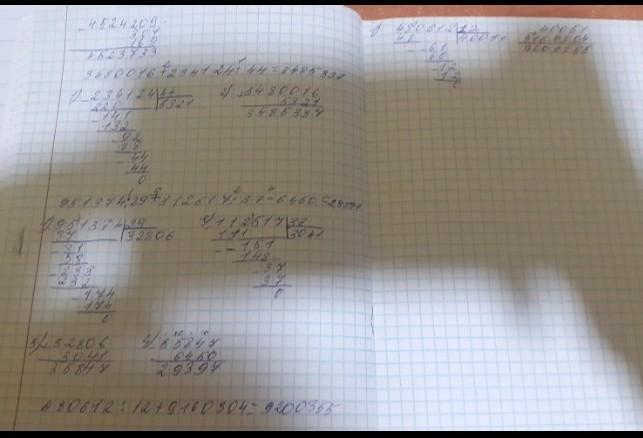 4524209
381
3480016+234124:44=3485337
1) 234124 44
220 5321
141
132
92
88
44
44
0
2) 3480016
5321
3485337
951374:29+112517:37-6450=29397
1) 951374 29
87 32806
81
58
233
232
174
174
0
2) 112517 37
111 3041
151
148
37
37
0
3) 32806
3041
35847
4) 35847
6450
29397
480612:12+9160304=9200355
1) 480612 12
48 40051
61
60
12
12
40051
9160304
9200355